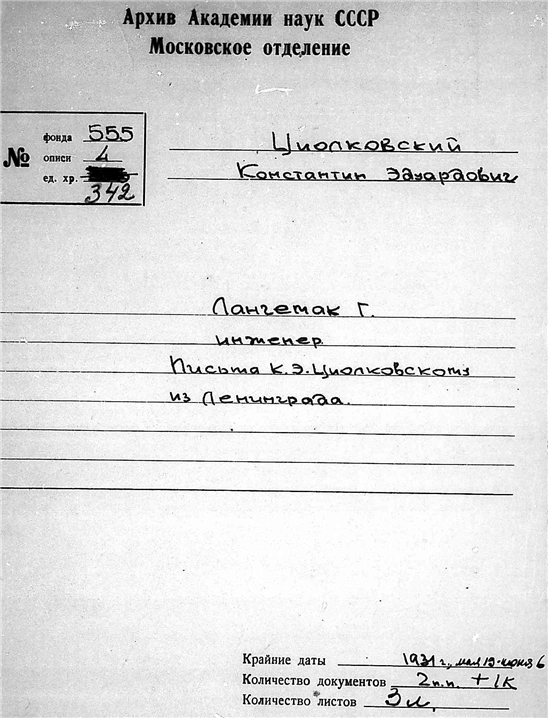 Архив Академии наук СССР
Московское отделение
№
фонда 555
описи 4
ед. хр.
342
Циолковский
Константин Эдуардович
Лангемак Г.
инженер
Письма К.Э.Циолковскому
из Ленинграда.
Крайние даты 1931 г., мая 19-июня 6
Количество документов 2 п.п. + 1К
Количество листов 3 л.